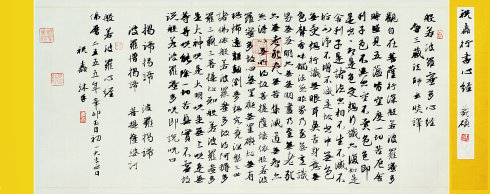 祝嘉行書心經
般若波羅蜜多心經
唐三藏法師玄奘譯
觀自在菩薩行深般若波羅蜜多
時照見五蘊皆空度一切苦厄舍
利子色不異空空不異色色即
是空空即是色受想行識亦復如是
舍利子是諸法空相不生不滅
不垢不淨不增不減是故空中無色
無受想行識無眼耳鼻舌身意無
色聲香味觸法無眼界乃至無意識
界無無明亦無無明盡乃至
無老死亦無老死盡無苦集滅道無智亦
無得以無所得故菩提薩埵依般若波
羅蜜多故心無罣礙無罣礙故無有恐
怖遠離顛倒夢想究竟涅槃三世
諸佛依般若波羅蜜多故得阿耨多
羅三藐三菩提故知般若波羅蜜多
是大神咒是大明咒是無上咒是無
等等咒能除一切苦真實不虛故
說般若波羅蜜多咒即說咒曰
揭諦揭諦 波羅揭諦
波羅僧揭諦 菩提薩婆訶
般若波羅蜜多心經
佛曆二五五五年辛卯
祝嘉 沐手